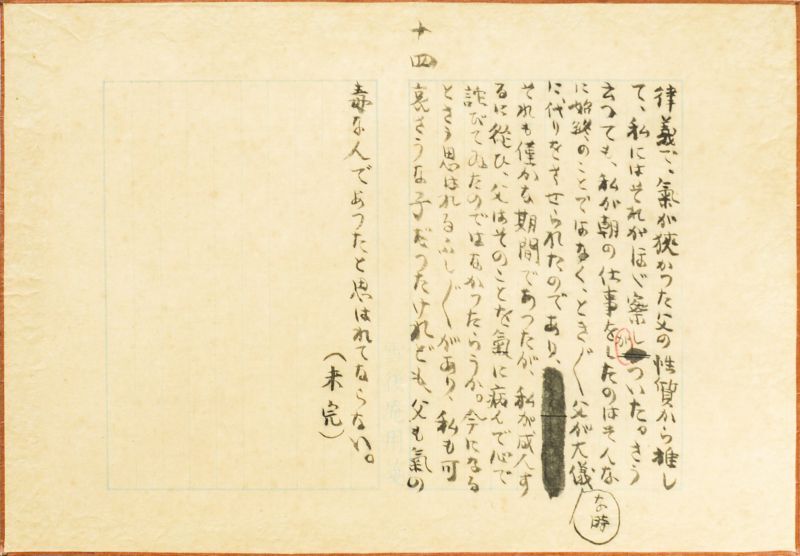 十四
律義で、氣が狹かつた父の性質から推し
て、私にはそれがほゞ察しがついた。さう
云つても、私が朝の仕事をしたのはそんな
に始終のことではなく、とき〴〵父が大儀な時
に、代りをさせられたのであり、
それも僅かな期間であつたが、私が成人す
るに從ひ、父はそのことを氣に病んで心で
詫びてゐたのではなかつたらうか。今になる
とさう思はれるふし〴〵があり、私も可
哀さうな子だつたけれども、父も氣の
毒なんであつたと思はれてならない。
(未完)